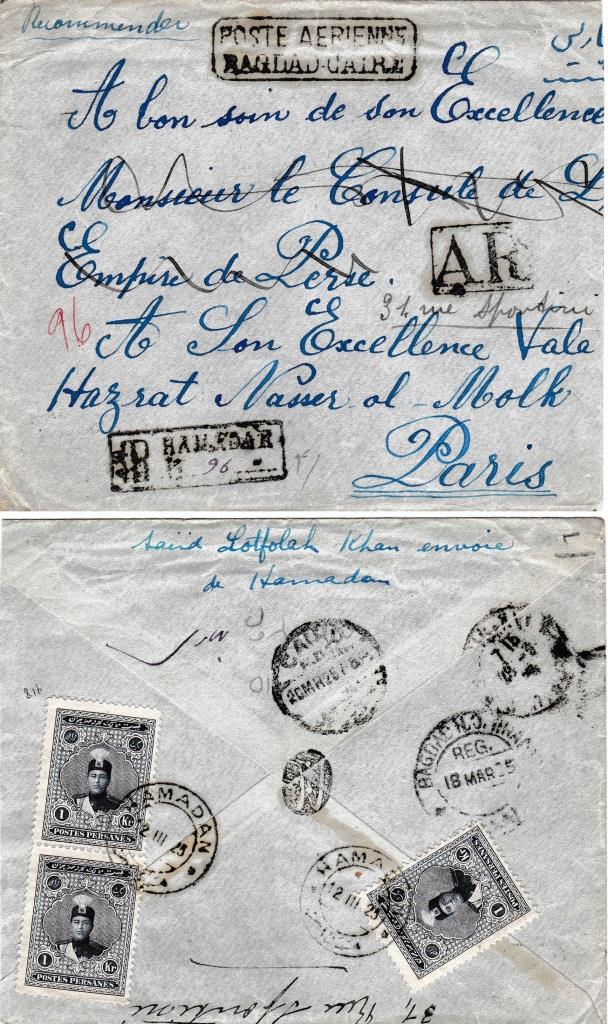 Recommender
POSTE AERIENNE
BAGDAD-CAIRE
A bon soin de son Excellence
Monsieur le Consule de L
Empire de Perse.
AR
31, rue Spontini
96
A Son Excellence Vala
Hazrat Nasser-ol-Molk
Paris
HAMADAN
96
Saiid Lotfolah Khan envoie
de Hamadan
CAIRO
20 MR 25
BAGDAD
REG.
18 MAR 25
216
1 Kr
POSTES PERSANES
HAMADAN
12 III 25
1 Kr
POSTES PERSANES
HAMADAN
12 III 25
1
POSTES PERSANES
31, Rue Spontini